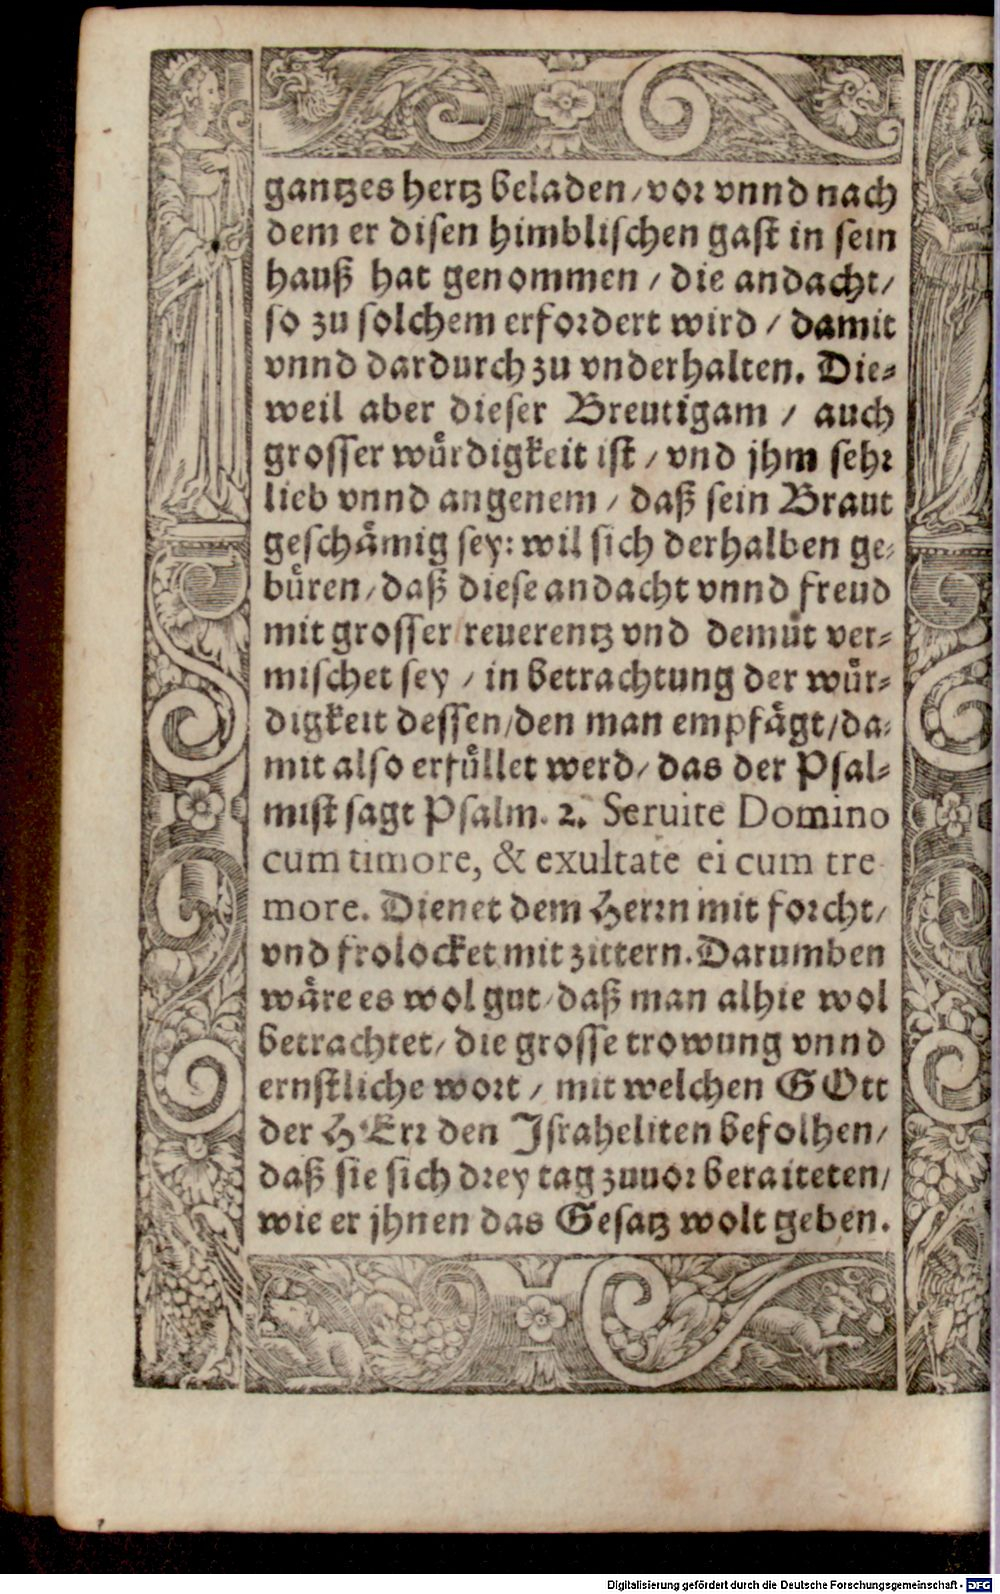 gantzes hertz beladen/vor vnnd nach
dem er disen himblischen gast in sein
hauß hat genommen / die andacht/
so zu solchem erfordert wird / damit
vnnd dardurch zu vnderhalten. Die-
weil aber dieser Breutigam / auch
grosser wůrdigkeit ist / vnd jhm sehr
lieb vnnd angenem / daß sein Braut
geschåmig sey: wil sich derhalben ge-
bůren/daß diese andacht vnnd freud
mit grosser reuerentz vnd demůt ver-
mischet sey / in betrachtung der wůr-
digkeit dessen/den man empfågt/da-
mit also erfůllet werd/ das der Psal-
mist sagt Psalm. 2. Seruite Domino
cum timore, & exultate ei cum tre-
more. Dienet dem Herrn mit forcht/
vnd frolocket mit zittern. Darumben
wåre es wol gut/daß man alhie wol
betrachtet/ die grosse trowung vnnd
ernstliche wort / mit welchen GOtt
der HErr den Israheliten befolhen/
daß sie sich drey tag zuuor beraiteten/
wie er jhnen das Gesatz wolt geben.
Digitalisierung gefördert durch die Deutsche Forschungsgemeinschaft - DFG